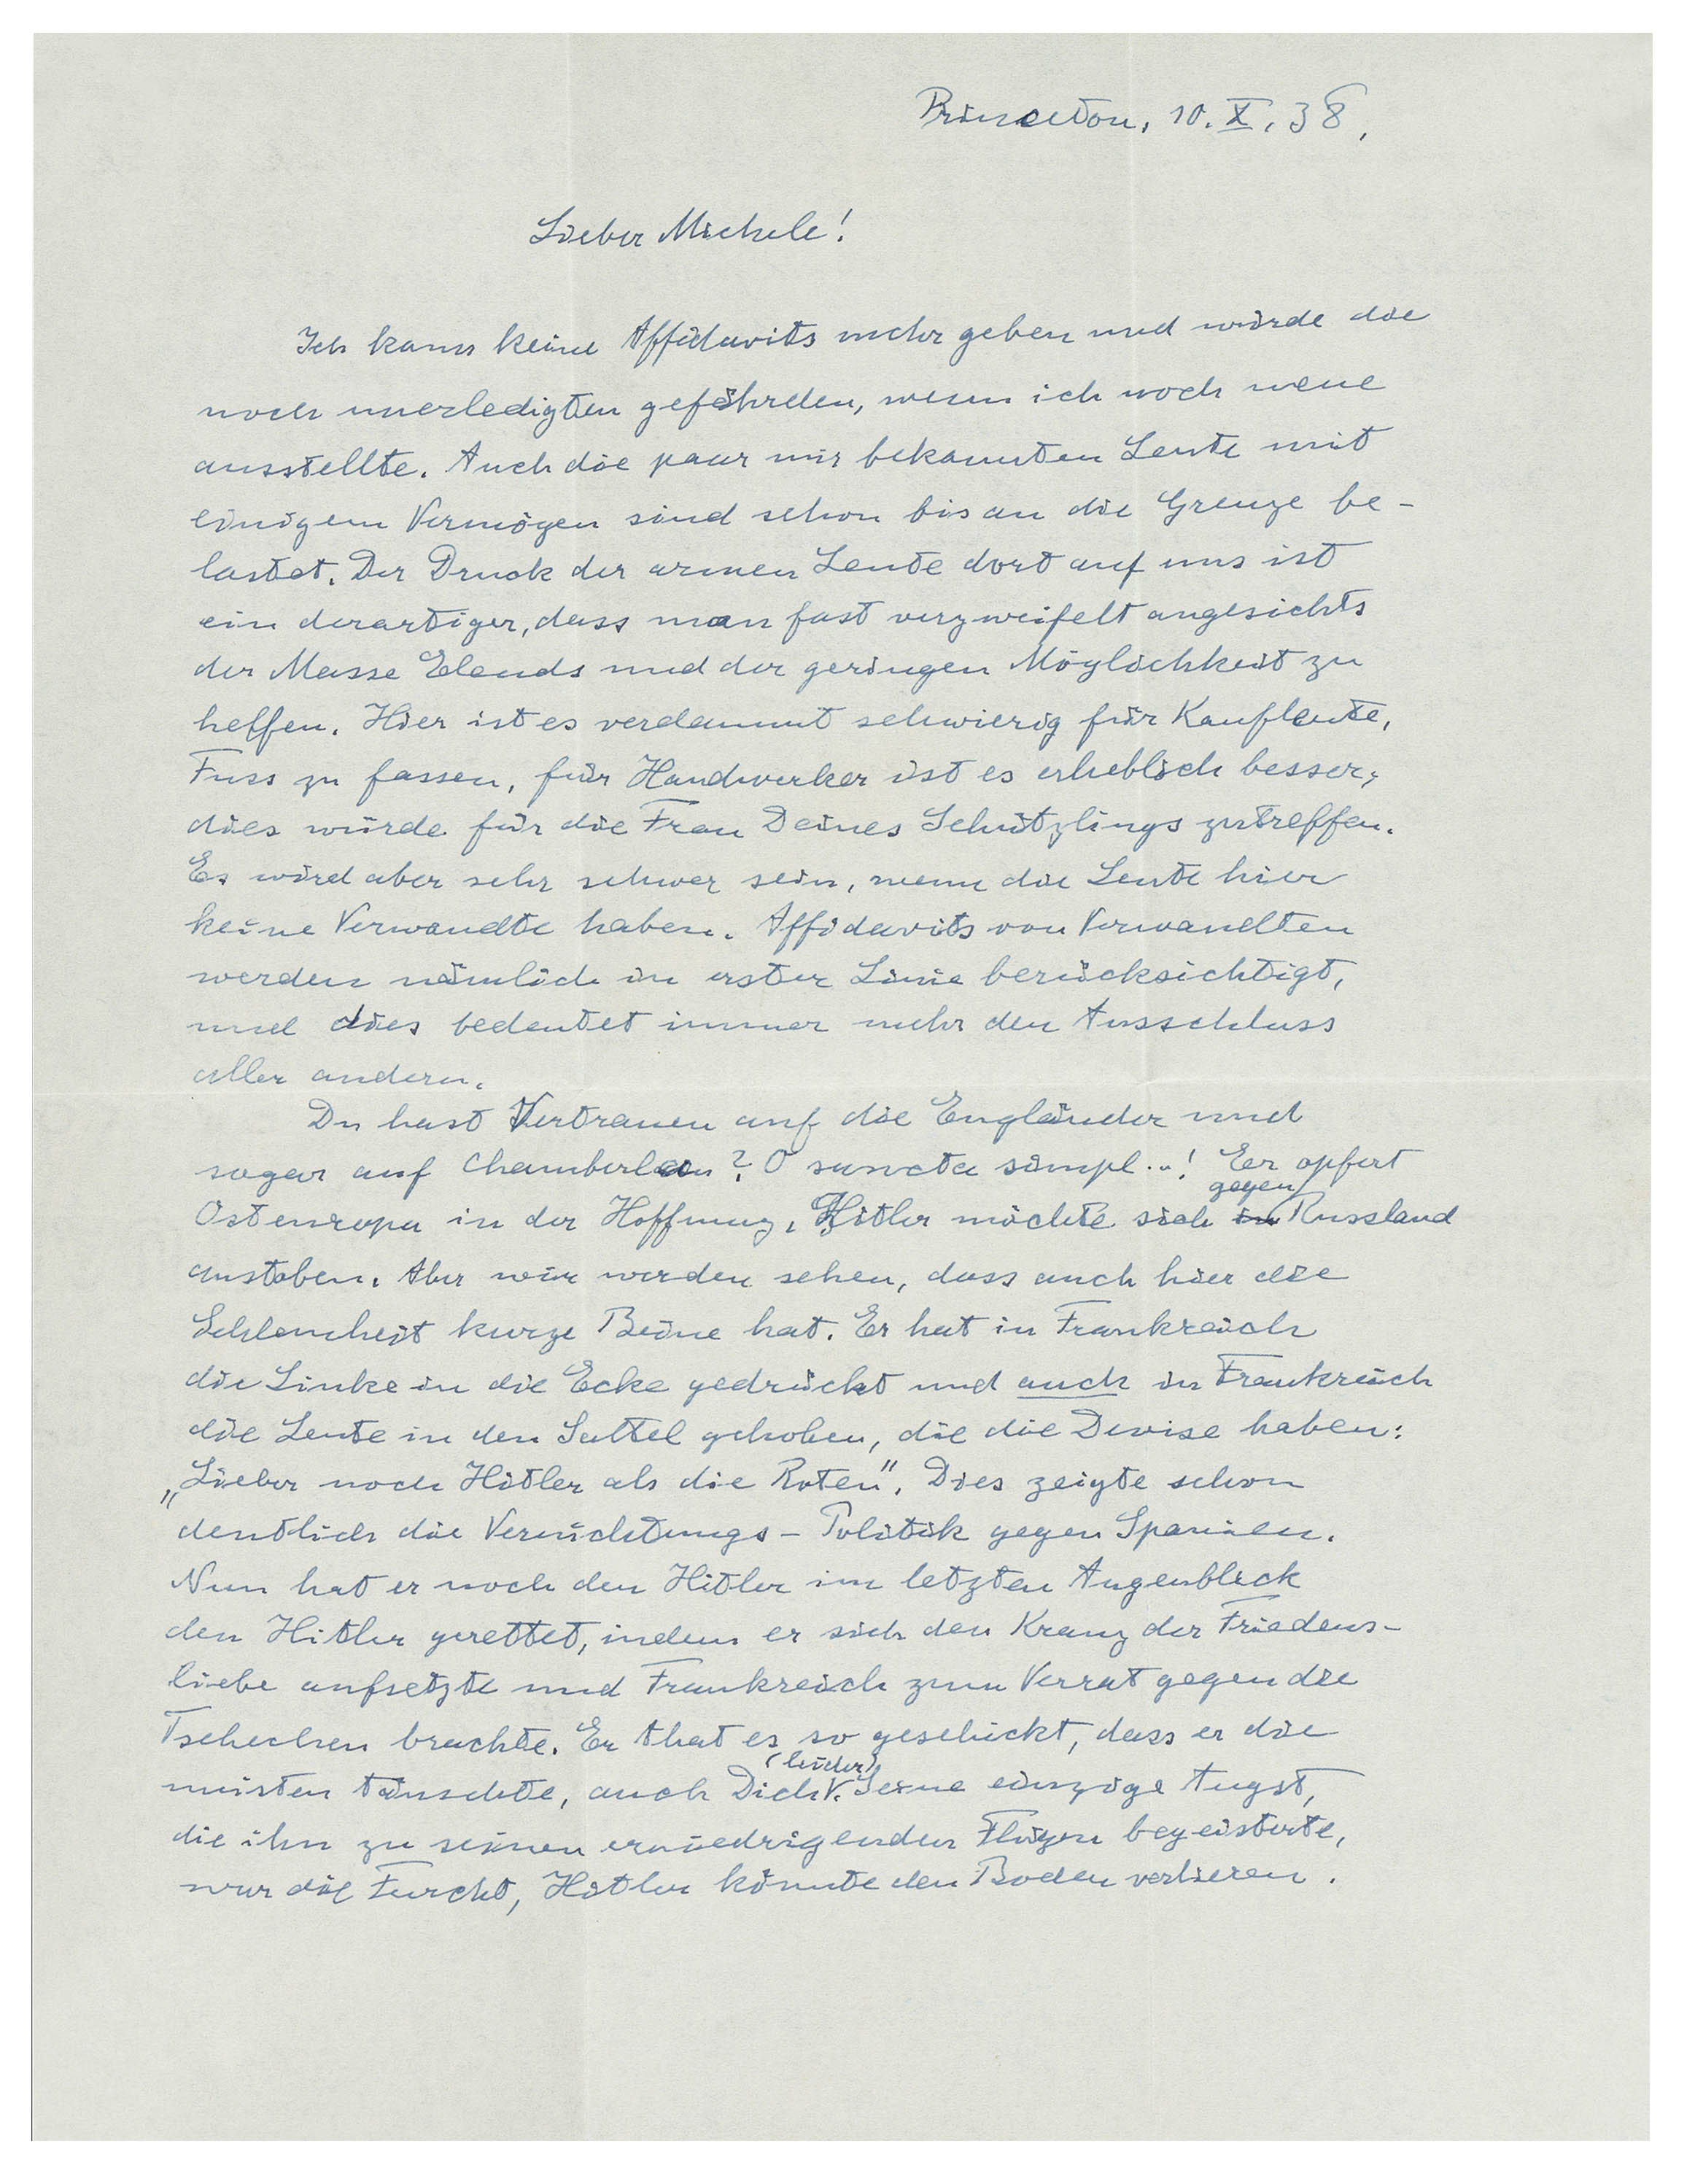 Princeton, 10. X. 38,
Lieber Michele!
Ich kann keine Affidavits mehr geben und würde die
noch unerledigten gefährden, wenn ich noch neue
ausstellte. Auch die paar mir bekannten Leute mit
einigem Vermögen sind schon bis an die Grenze be-
lastet. Der Druck der armen Leute dort auf uns ist
ein derartiger, dass man fast verzweifelt angesichts
der Masse Elends und der geringen Möglichkeit zu
helfen. Hier ist es verdammt schwierig für Kaufleute,
Fuss zu fassen, für Handwerker ist es erheblich besser;
dies würde für die Frau Deines Schützlings zutreffen.
Es wird aber sehr schwer sein, wenn die Leute hier
keine Verwandte haben. Affidavits von Verwandten
werden nämlich in erster Linie berücksichtigt,
und dies bedeutet immer mehr den Ausschluss
aller andern.
Du hast Vertrauen auf die Engländer und
sogar auf Chamberlain? O sancta simpl...! Er opfert
Osteuropa in der Hoffnung, Hitler möchte sich in gegen Russland
austoben. Aber wir werden sehen, dass auch hier die
Schlauheit kurze Beine hat. Er hat in Frankreich
die Linke in die Ecke gedrückt und auch in Frankreich
die Leute in den Sattel gehoben, die die Devise haben:
„Lieber noch Hitler als die Roten". Dies zeigte schon
deutlich die Vernichtungs-Politik gegen Spanien.
Nun hat er noch den Hitler im letzten Augenblick
den Hitler gerettet, indem er sich den Kranz der Friedens-
liebe aufsetzte und Frankreich zum Verrat gegen die
Tschechen brachte. Er that es so geschickt, dass er die
meisten täuschte, auch Dich (leider). Seine einzige Angst,
die ihn zu seinen erniedrigenden Flügen begeisterte,
war die Furcht, Hitler könnte den Boden verlieren.